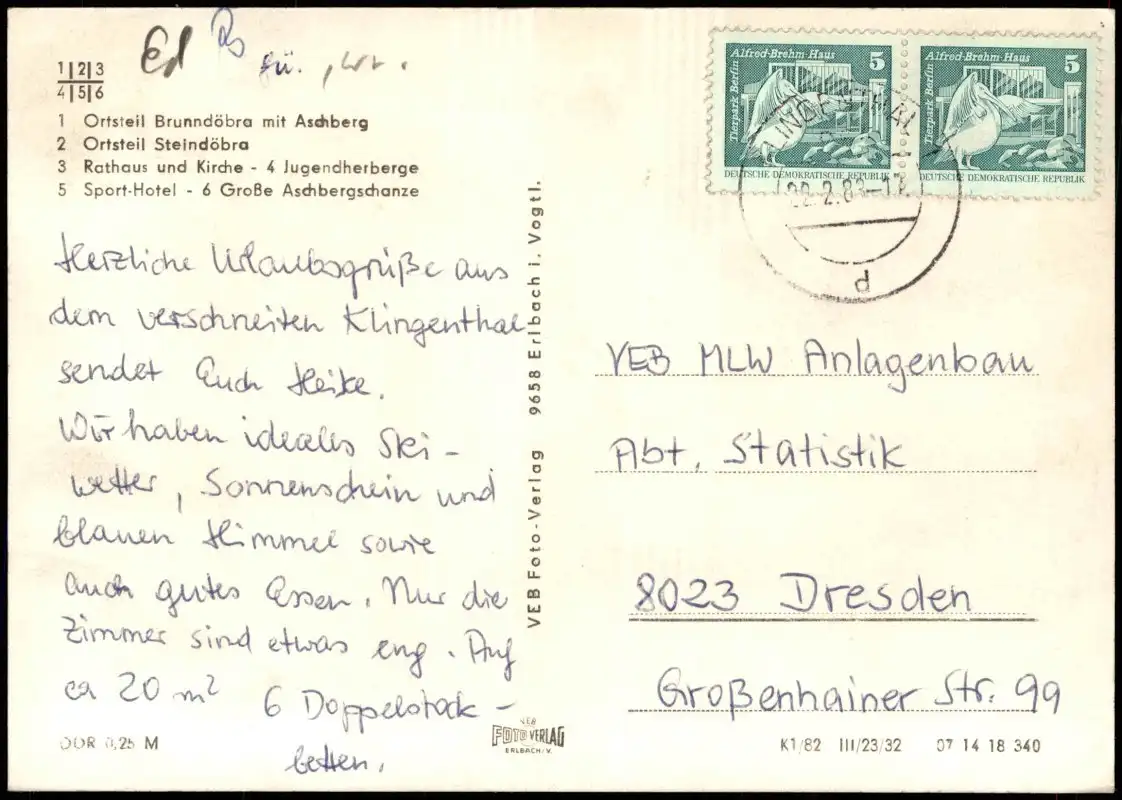 Ed
1|2|3
4|5|6
1 Ortsteil Brunndöbra mit Aschberg
2 Ortsteil Steindöbra
3 Rathaus und Kirche - 4 Jugendherberge
5 Sport-Hotel - 6 Große Aschbergschanze
Herzliche Urlaubsgrüße aus
dem verschneiten Klingenthal
sendet Euch Heike.
Wir haben ideales Ski-
wetter, Sonnenschein und
blauen Himmel sowie
auch gutes Essen. Nur die
Zimmer sind etwas eng. Auf
ca 20 m² 6 Doppelstock-
betten.
DDR 0,25 M
VEB Foto-Verlag 9658 Erlbach i. Vogtl.
VEB
FOTO VERLAG
ERLBACH/V.
Tierpark Berlin Alfred-Brehm-Haus 5
DEUTSCHE DEMOKRATISCHE REPUBLIK
Tierpark Berlin Alfred-Brehm-Haus 5
DEUTSCHE DEMOKRATISCHE REPUBLIK
KLINGENTHAL
.2.83-12
d
VEB MLW Anlagenbau
Abt. Statistik
8023 Dresden
Großenhainer Str. 99
K1/82 III/23/32 07 14 18 340